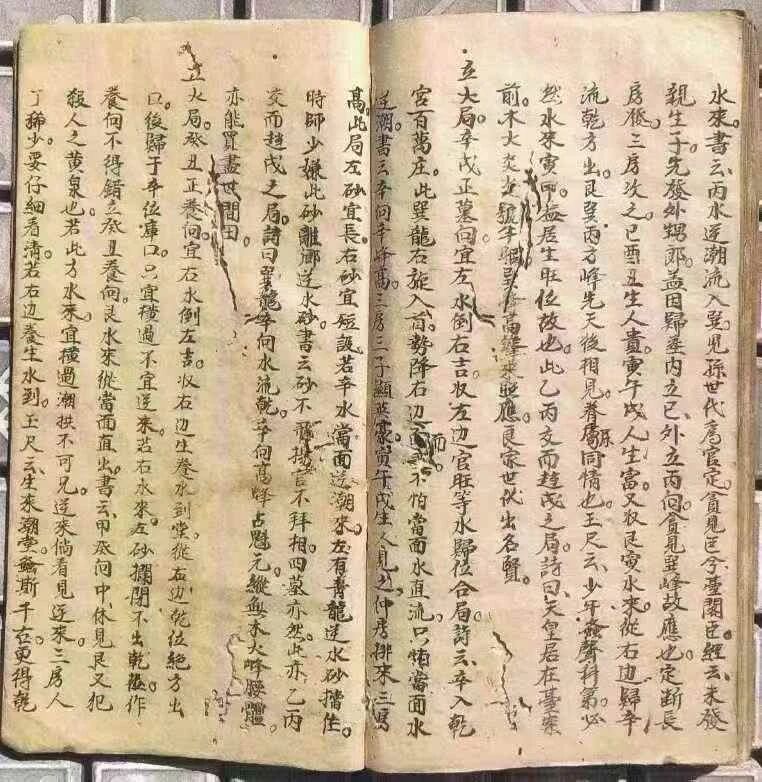 水來書云丙水逆潮流入巽兒孫世代為官定貪見巨今臺閣巨經云未發
親生子先發外甥郎益因歸產內立巳外立丙向貪見巽峰故應也定斷長
房發三房次之巳酉丑生人貴寅午戌人生富又収艮寅水來從右边歸辛
流乾方出艮巽兩方峰先天後相見眷屬同情也玉尺云少年蚤聲科第必
然水來寅甲無居生旺位故也此乙丙交而趍戌之局詩曰天皇居在臺案
前木火炎光 牛 巽峰高聳來照應良家世代出名賢
立火局辛戌正墓向宜左水倒右吉収左边官旺等水歸位合局詩云辛入乾
宮百萬庄此巽龍右旋入首勢降右边而 不怕當面水直流只怕當面水
逆潮書云辛向辛峰高三房三子顯英豪寅午戌生人見之仲房排來三寫
高此局左砂宜長右砂宜短設若辛水當面逆潮來左有青龍逆水砂擋住
時師少嫌此砂離鄉逆水砂書云砂不 揚官不拜相四墓亦然此亦乙丙
交而趍戌之局詩曰巽龍辛向水流乾辛向高峰占魁元縱無木火峰腰體
亦能買盡世間田
立火局癸丑正養向宜右水倒左吉収右边生養水到堂從右边乾位絕方出
口後歸于辛位庫口只宜橫過不宜逆來若右水來左砂攔閉不出乾 作
養向不得錯立癸丑養向艮水來從當面直出書云甲癸向中休見艮又犯
殺人之黃泉也若此方水來宜橫過潮拱不可兄逆來倘看見逆來三房人
丁稀少要仔細看清若右边養生水到玉尺云生來潮堂螽斯千古更得乾